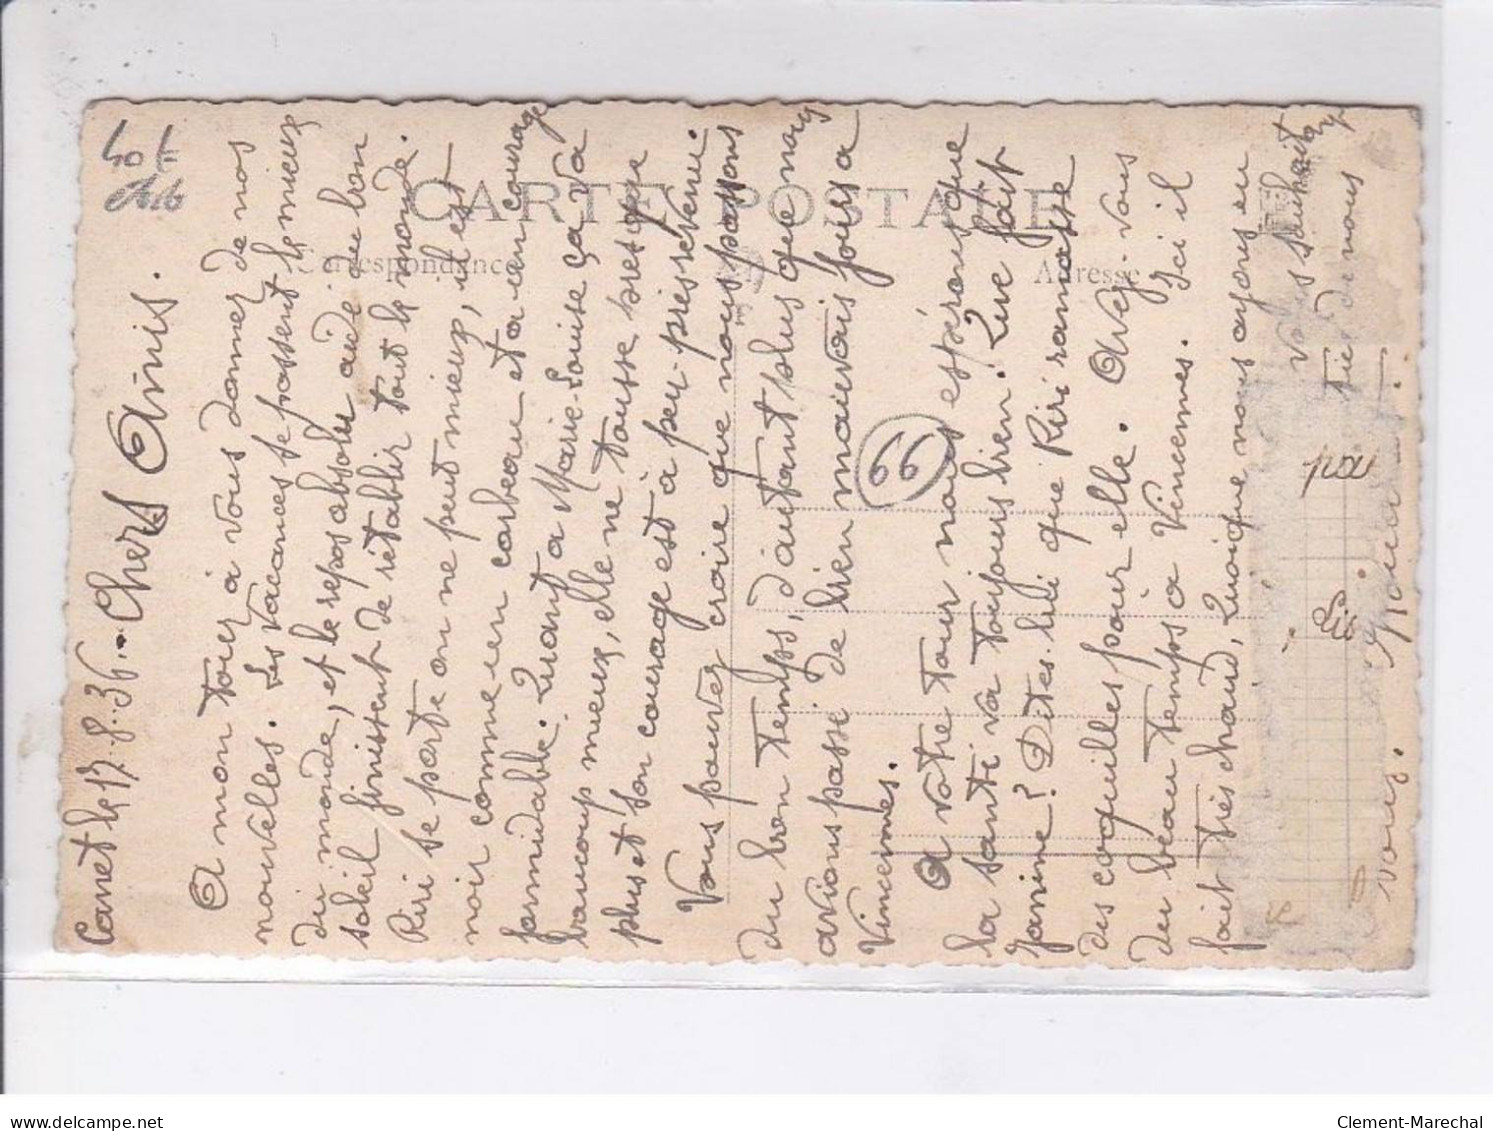 Canet le 17.8.36. Chers Amis.
A mon tour à vous donner de nos
nouvelles. Les vacances se passent le mieux
du monde, et le repos absolu aidé du bon
soleil finissent de rétablir tout le monde.
Riri se porte on ne peut mieux, il est
noir comme un corbeau et a un courage
formidable. Quant à Marie-Louise ça va
beaucoup mieux, elle ne tousse presque
plus et son courage est à peu près revenu.
Vous pouvez croire que nous passons
du bon temps, d'autant plus que nous
avions passé de bien mauvais jours à
Vincennes.
A votre tour nous espérons que
la santé va toujours bien. Que fait
Janine? Dites lui que Riri ramasse
des coquilles pour elle. Avez-vous
du beau temps à Vincennes. Ici il
fait très chaud, Quoique nous ayons eu
souhait
de nous
vous.
CARTE POSTALE
Correspondance
Adresse
66
delcampe.net
Clement-Marechal